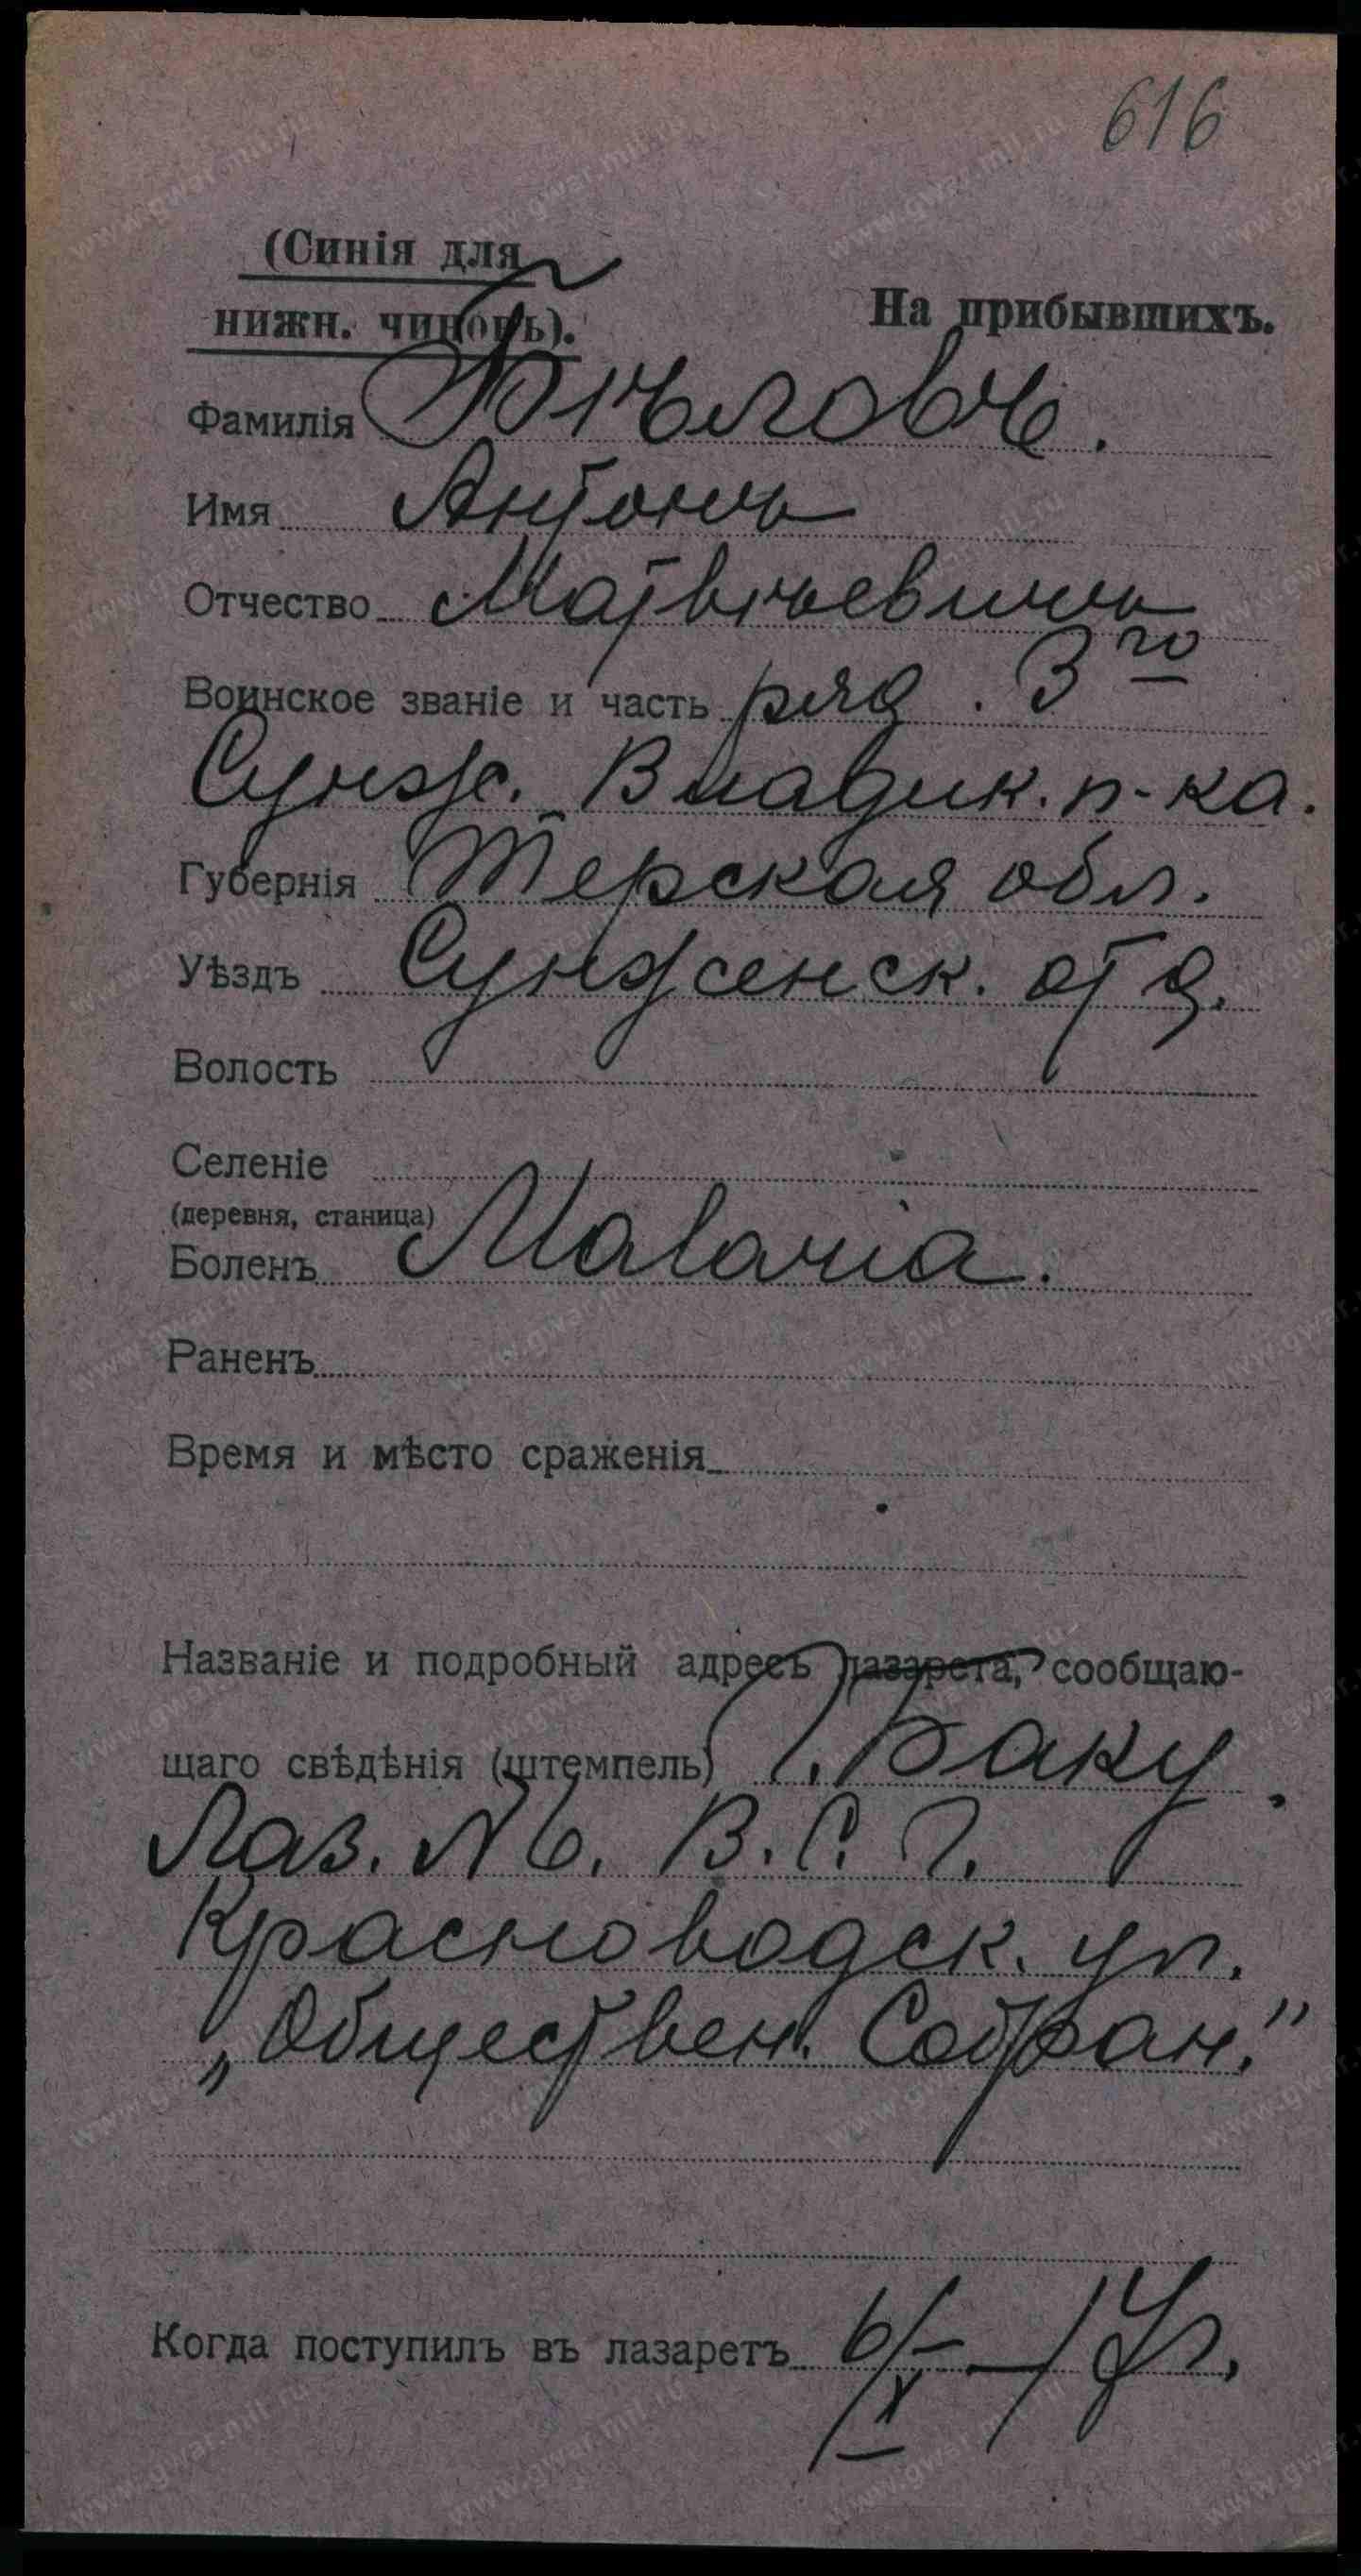 616
(Синія для
нижн. чиновъ).
На прибывшихъ.
Фамилія Бѣловъ.
Имя Антонъ
Отчество Матвѣевичъ
Воинское званіе и часть ряд. 3го
Сунж. Владик. п-ка.
Губернія Терская обл.
Уѣздъ Сунженск. отд.
Волость
Селеніе
(деревня, станица)
Боленъ Malaria.
Раненъ
Время и мѣсто сраженія
Названіе и подробный адресъ лазарета, сообщаю-
щаго свѣдѣнія (штемпель) г. Баку.
Лаз. № 6. В. С. Г.
Красноводск. ул.
„Обществен. Собран."
Когда поступилъ въ лазаретъ 6/X—17г.